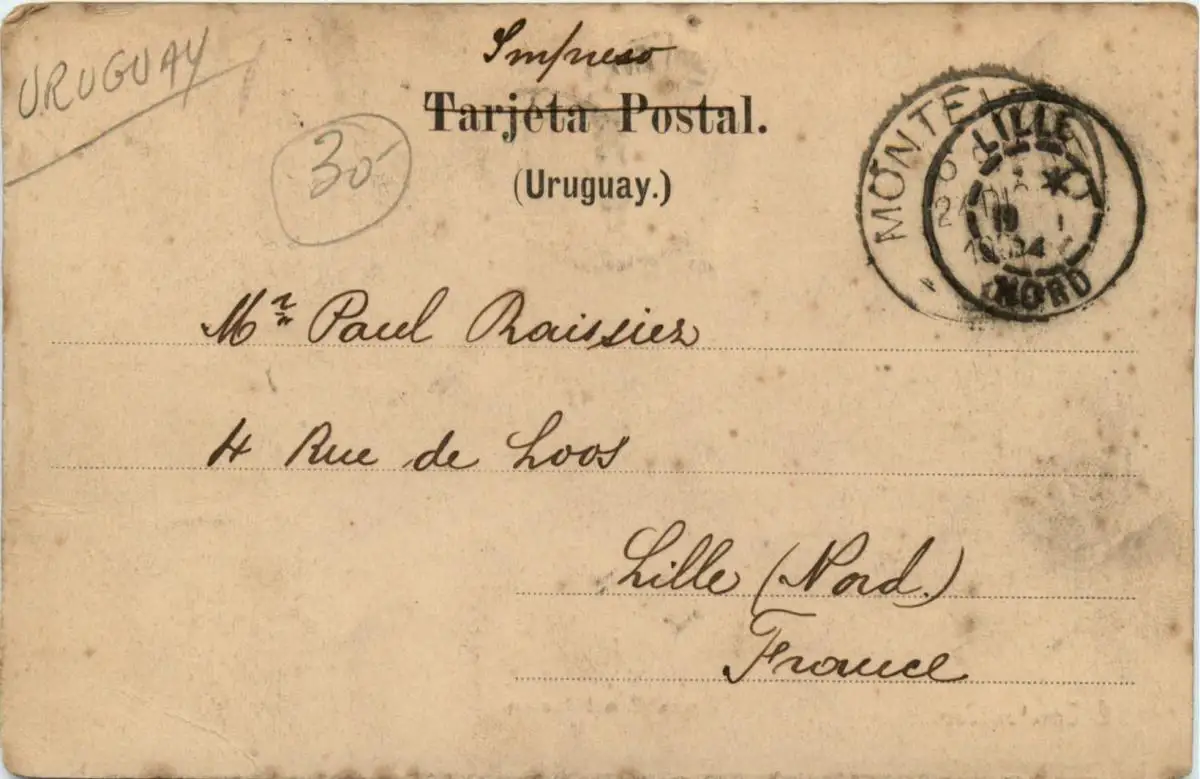 URUGUAY
Impreso
30
Tarjeta Postal.
(Uruguay.)
MONTEV
LILLE
NORD
Mr Paul Raissier
4 Rue de Loos
Lille (Nord.)
France